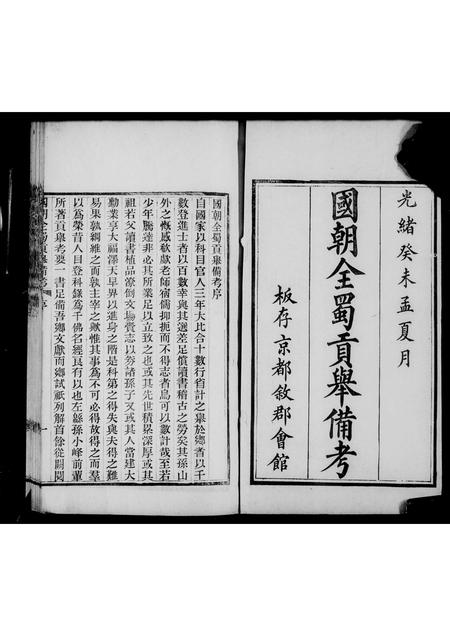 光緒癸未孟夏月
國朝全蜀貢舉備考
板存京都敘郡會館
國朝全蜀貢舉備考序
自國家以科目官人三年大比合十數行省計之舉於鄉者以千
數登進士者以百數幸與其選差足償讀書稽古之勞矣其孫山
外之慨感欷歔老師宿儒抑扼而不得志者烏可以數計哉至若
少年騰達非必其所業足以立致之也或其先世積累深厚或其
祖若父讀書植品潦倒文場賫志以歿諸孫子又或其人當建大
勳業享大福澤天早畀以進身之階是科第之得失與夫得之難
易果孰綱維之而孰主宰之歟惟其事為不可必得故得之而羣
以為榮昔人目登科錄為千佛名經良有以也左緜孫小峰前輩
所著貢舉考要一書足備吾鄉文獻而鄉試祇列解首餘從闕
國朝全蜀貢舉備考 序
一